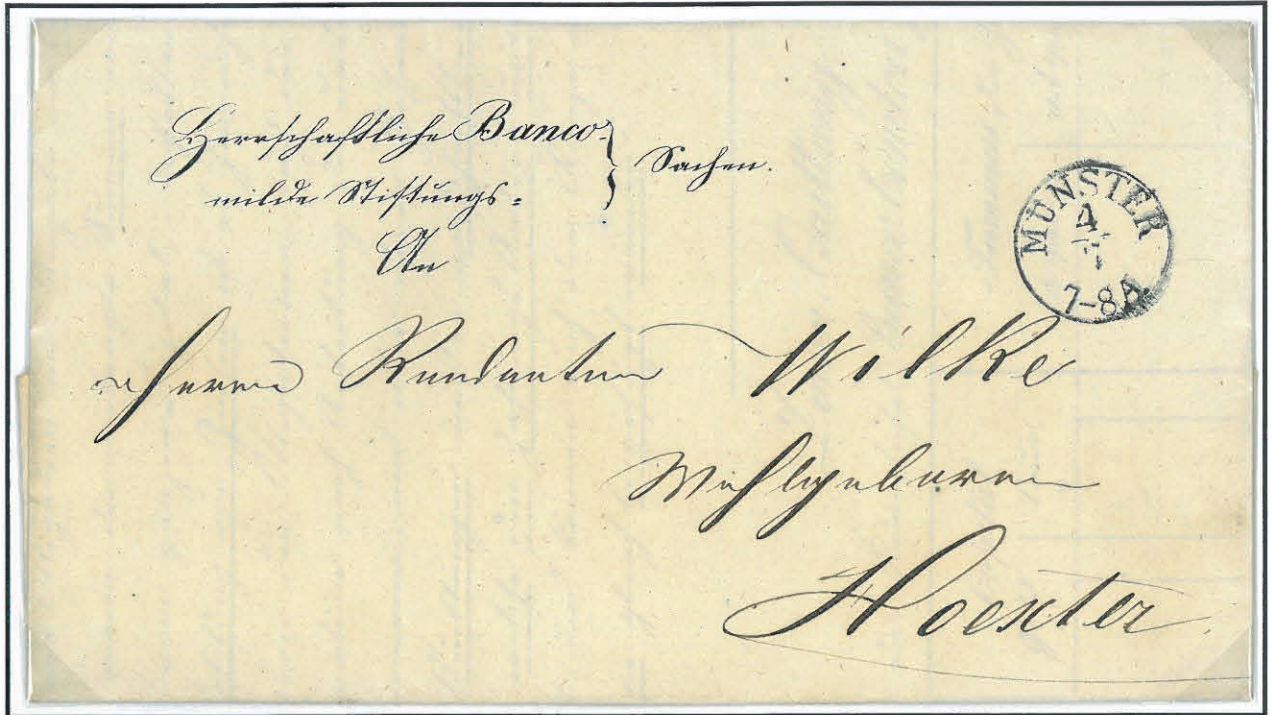 Herrschaftliche Banco-
milde Stiftungs-
} Sachen.
An
Herrn Rendanten Wilke
Wohlgeboren
Hoexter.
MÜNSTER
4
7-8A.